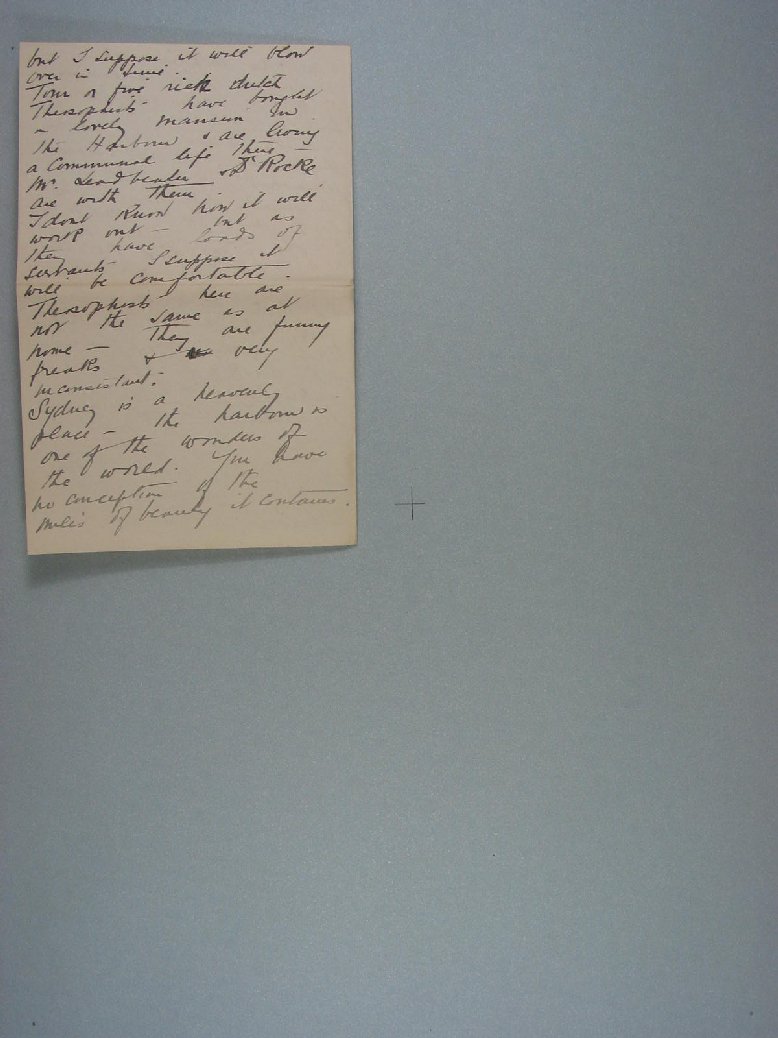 but I suppose it will blow
over in time.
Four or five rich dutch
Theosophists have bought
a lovely mansion in
the Harbour & are living
a communal life there -
Mr. Leadbeader & Dr Rocke
are with them.
I dont know how it will
work out - but as
they have loads of
servants I suppose it
will be comfortable.
Theosophists here are
not the same as at
home - They are funny
freaks & very
inconsistant.
Sydney is a heavenly
place - the harbour is
one of the wonders of
the world. You have
no conception of the
miles of beauty it contains.